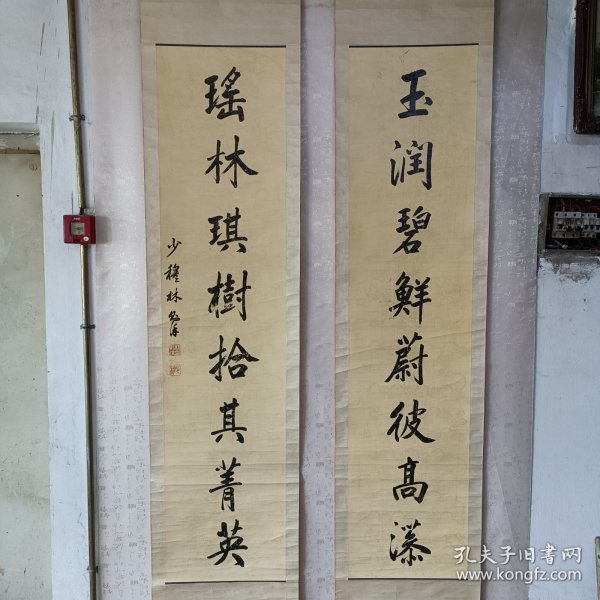 玉润碧鲜蔚彼高藻
瑶林琪樹拾其菁英
少穆林
孔夫子旧书网
www.kongfz.com